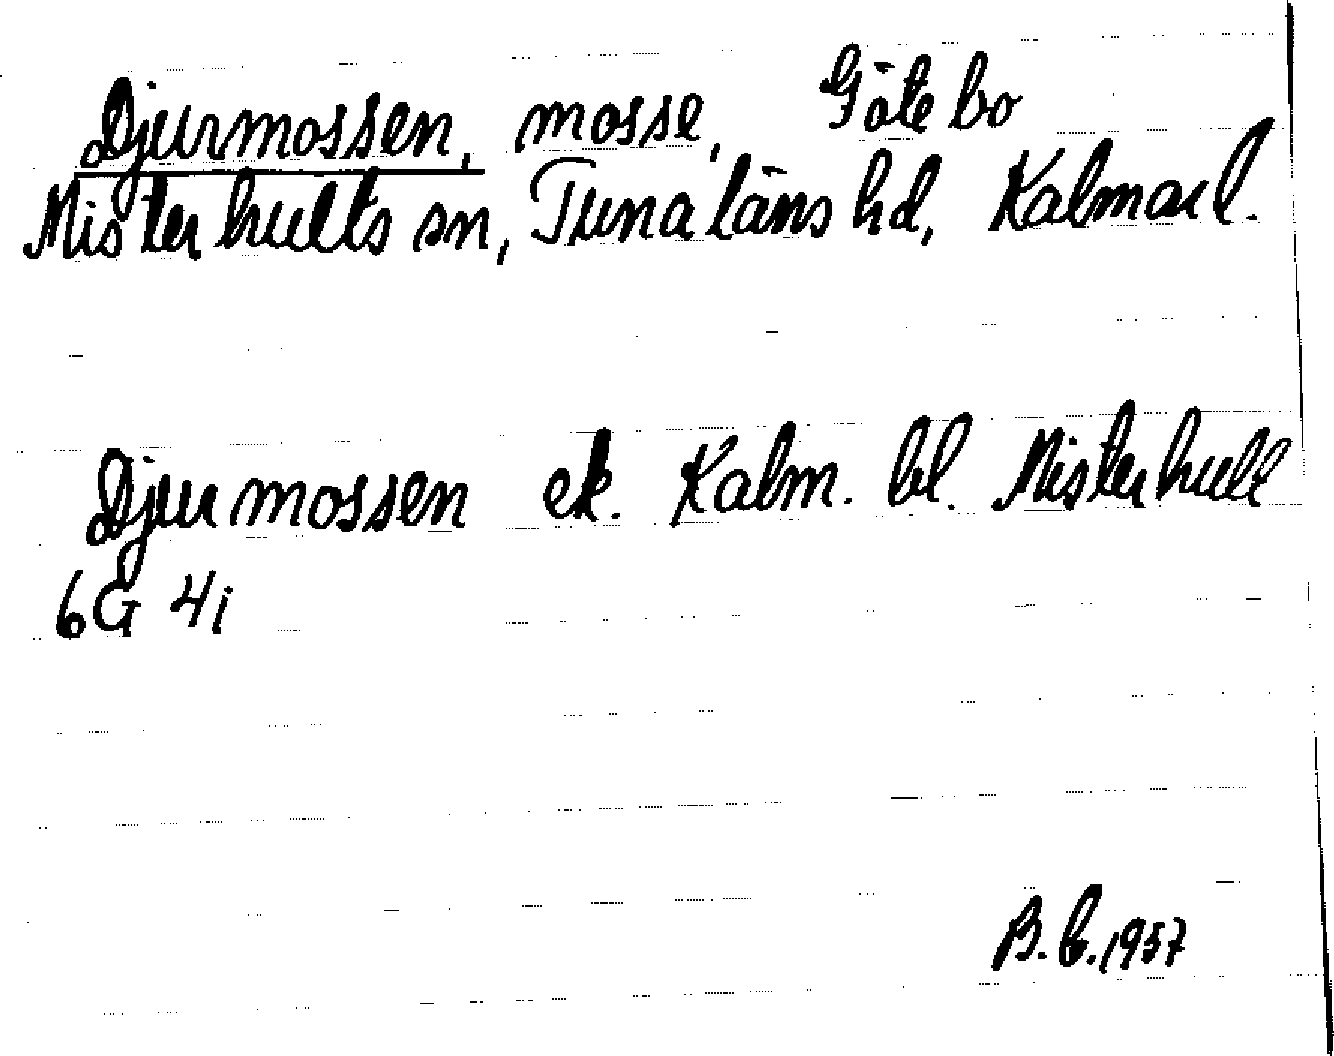 Djurmossen, mosse, Götebo
Misterhults sn, Tunaläns hd, Kalmar l.
Djurmossen ek. Kalm. bl. Misterhult
6G 4i
B.C. 1957